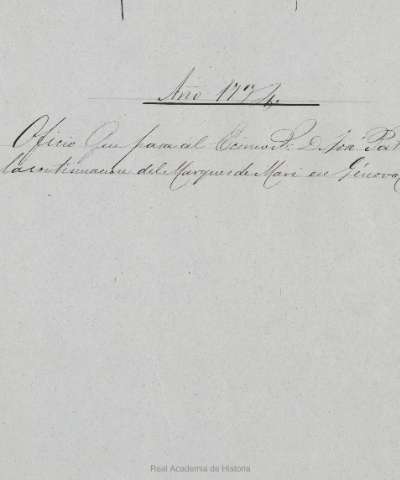 Año 177
Oficio que pasa al Ecsmo S. D. Jose Pat
la continuacion del Marques de Mari en Génova
Real Academia de Historia